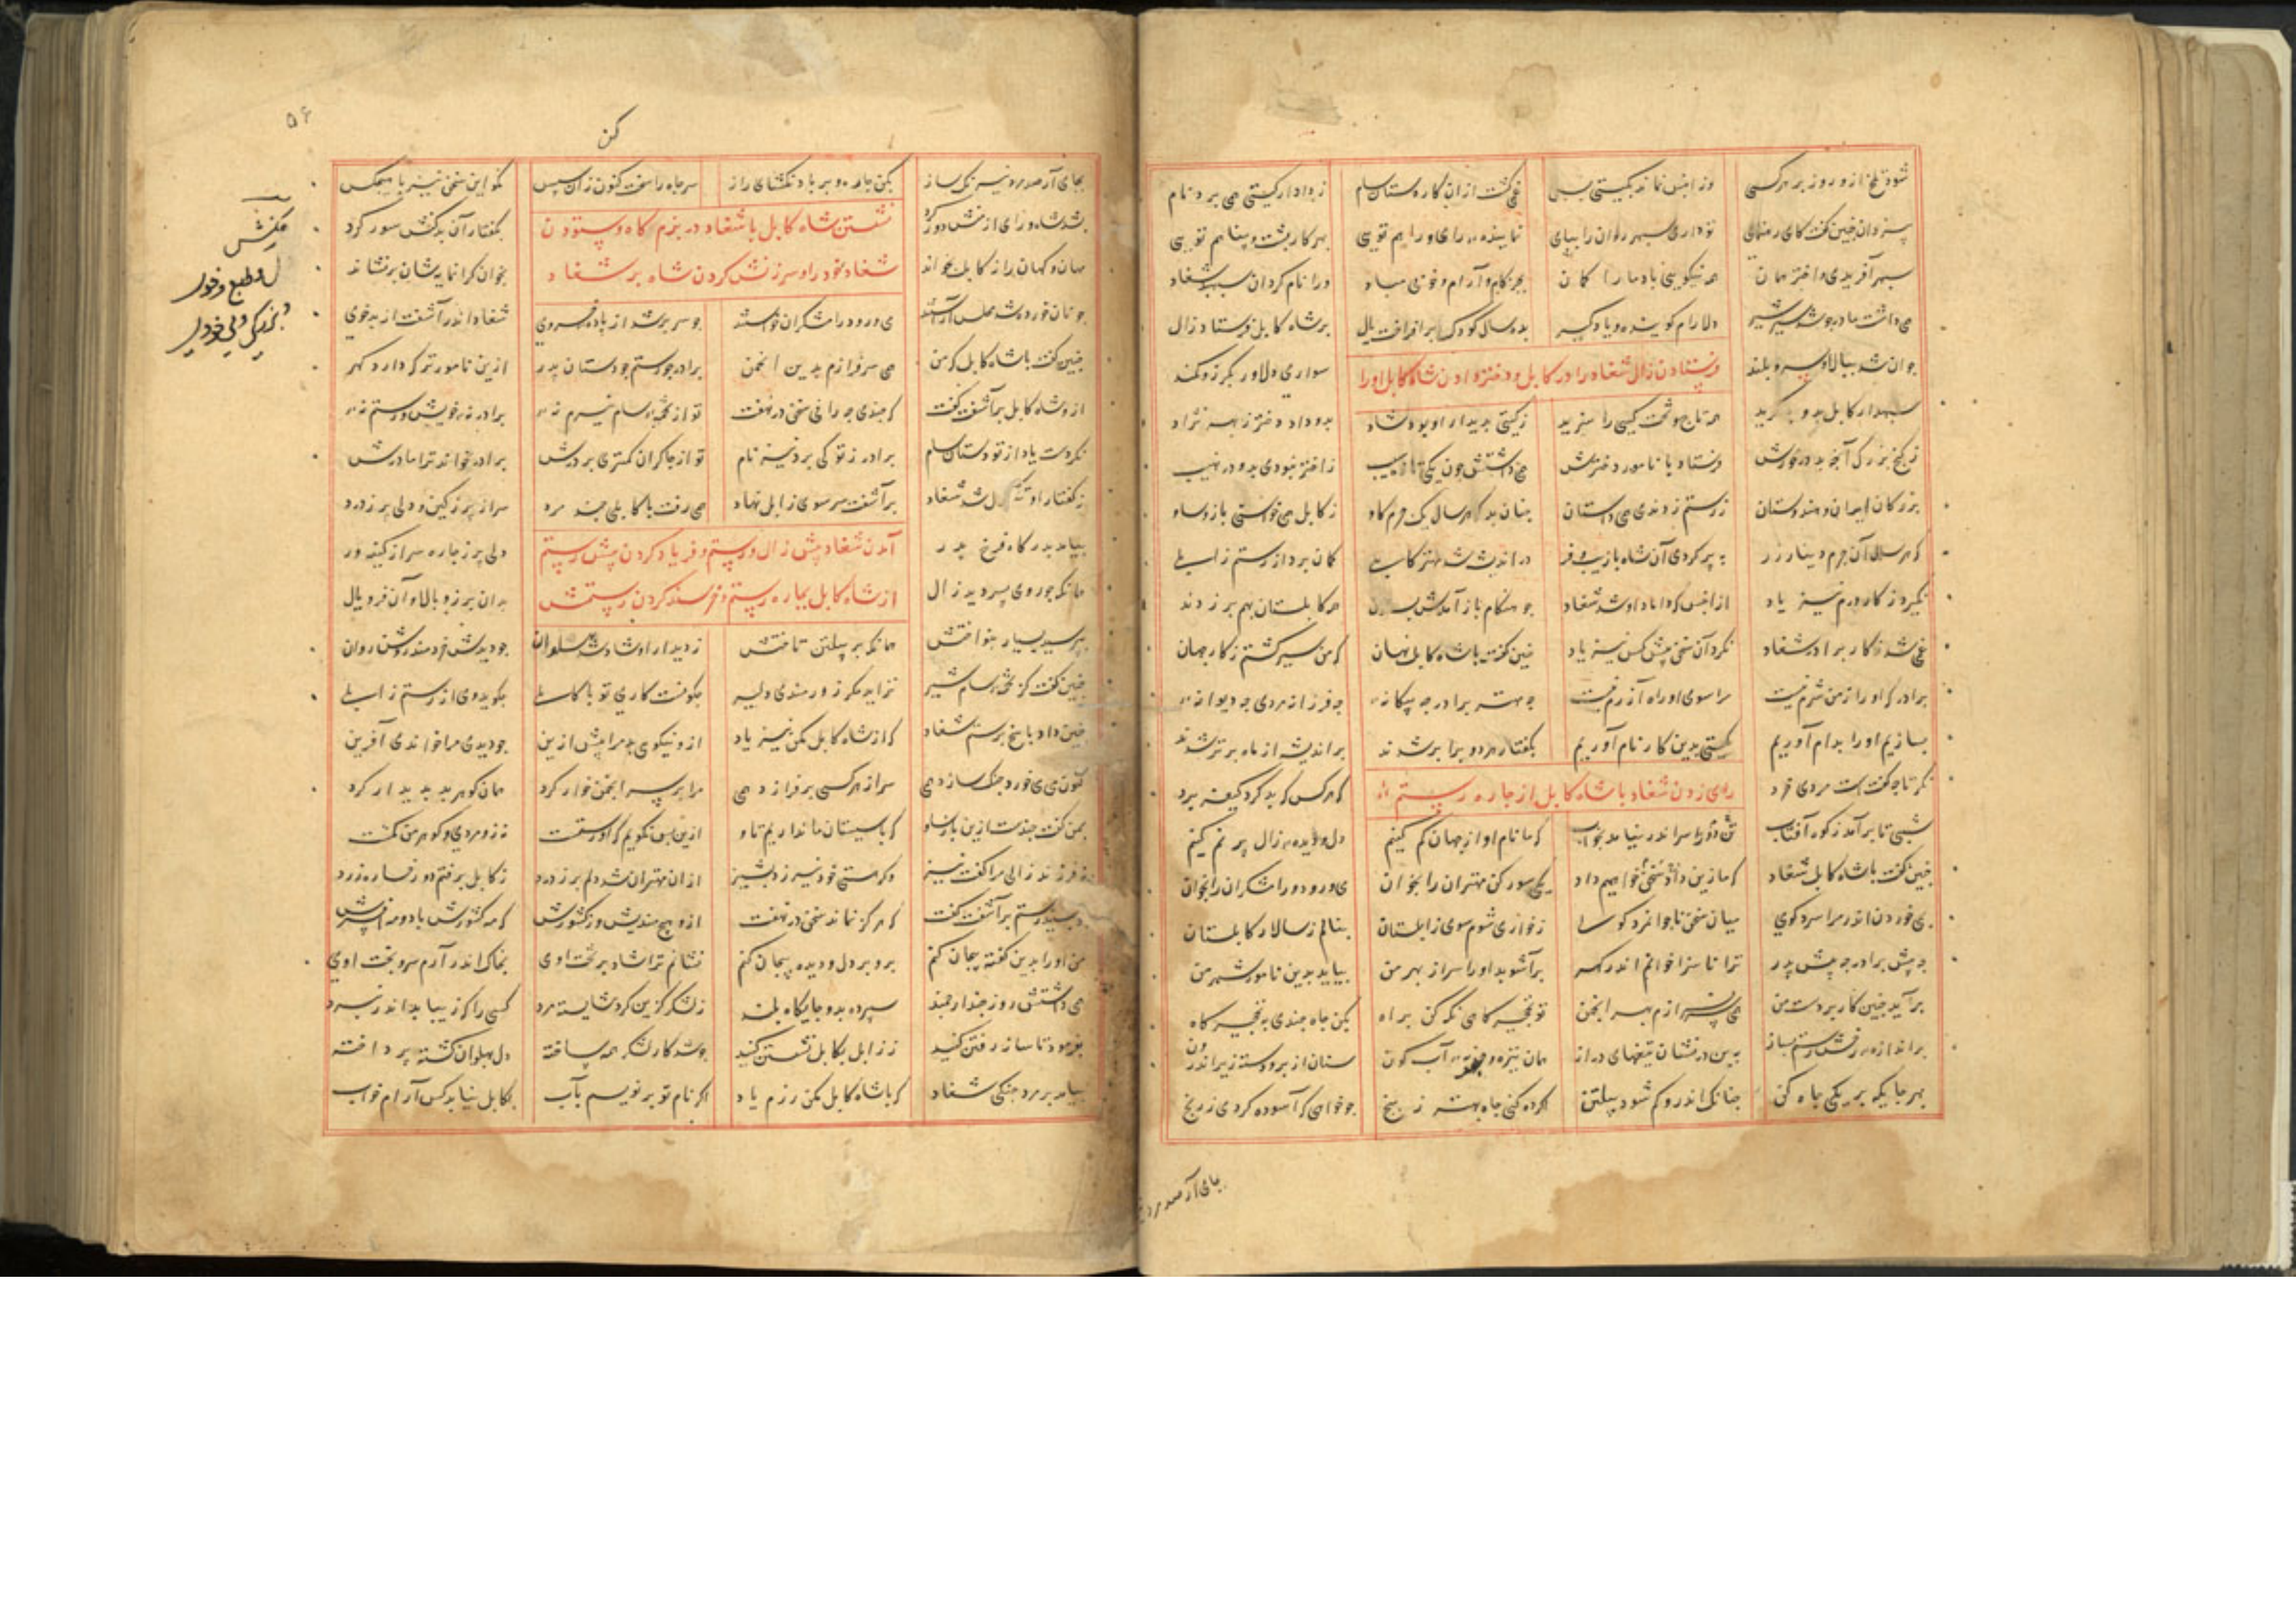 شود تلخ ازو روز بر هر کسی وز انپس نماند بگیتی بسی
غمی گشت ازان کار دستان سام ز دادار گیتی همی برد نام
بیزدان چنین گفت کای رهنمای تو داری سپهر روان را بپای
نماینده رای و راهم تویی بهر کار پشت و پناهم تویی
سپهر آفریدی و اختر همان همه نیکویی باد ما را گمان
بجز کام و آرام و خوبی مباد ورا نام کرد آن سپهبد شغاد
همی داشت مادر چو شد شیر سیر دلارام گوینده و یادگیر
بده سال کودک برافراخت یال بر شاه کابل فرستاد زال
فرستادن زال شغاد را در کابل و دختر دادن شاه کابل او را
جوان شد ببالای سرو بلند سواری دلاور بگرز و کمند
سپهدار کابل بدو بنگرید همی تاج و تخت کیی را سزید
ز گیتی بدیدار او بود شاد بدو داد دختر ز بهر نژاد
ز گنج بزرگ آنچه بد در خورش فرستاد با نامور دخترش
همی داشتش چون یکی تازه سیب ز اختر نبودی بدو در نهیب
بزرگان ایران و هندوستان ز رستم زدندی همی داستان
چنان بد که هر سال یک چرم گاو ز کابل همی خواستی باژ و ساو
در اندیشه شد مهتر کابلی گمان برد از رستم زابلی
نگیرد ز کار درم نیز یاد ازانپس که داماد او شد شغاد
چو هنگام باز آمدش بستدن همه کابلستان بهم بر زدند
غمی شد ز کار برادر شغاد نکرد آن سخن پیش کس نیز یاد
چنین گفت با شاه کابل نهان که من سیر گشتم ز کار جهان
برادر که او را ز من شرم نیست مرا سوی او راه آزرم نیست
چه مهتر برادر چه بیگانه چه فرزانه مردی چه دیوانه
بسازیم او را بدام آوریم بگیتی بدین کار نام آوریم
بگفتار هر دو برابر شدند براندیشه از ماه برتر شدند
رای زدن شغاد با شاه کابل از چاره رستم
نگر تا چه گفتست مردی خرد که هر کس که بد کرد کیفر برد
شبی تا برآمد ز کوه آفتاب
که ما نام او از جهان گم کنیم دل و دیده زال پر نم کنیم
چنین گفت با شاه کابل شغاد که گر زین سخن داد خواهیم داد
یکی سور کن مهتران را بخوان می و رود و رامشگران را بخوان
می خوردن اندر مرا سرد گوی میان سخن ناجوانمرد گوی
ز خواری شوم سوی زابلستان بنالم ز سالار کابلستان
چه پیش برادر چه پیش پدر ترا ناسزا خوانم اندر گهر
برآشوبد او را سر از بهر من بیاید بدین نامور شهر من
برآید چنین کار بر دست من همی سرفرازم بهر انجمن
تو نخچیرگاهی نگه کن براه بکن چاه چندی به نخچیرگاه
بر اندازه رخش رستم بساز ببن در نشان تیغهای دراز
همان نیزه و حربه آب گون سنان از بر و دسته زیر اندرون
بهر جایگه بر یکی چاه کن چنانک اندرو گم شود پیلتن
اگر ده کنی چاه بهتر ز پنج چو خواهی که آسوده گردی ز رنج
بجای آر صد مرد نیرنگ ساز
۵۶
کن
بجای آر صد مرد نیرنگ ساز بکن چاه و بر باد مگشای راز
سر چاه را سخت کن زان سپس مگو این سخن نیز با هیچکس
نشستن شاه کابل با شغاد در بزم گاه و ستودن
شغاد خود را و سرزنش کردن شاه بر شغاد
بشد شاه و رای از منش دور کرد بگفتار آن بدکنش سور کرد
مهان و کهان را ز کابل بخواند بخوان گرانمایشان برنشاند
چو نان خورده شد مجلس آراستند می و رود و رامشگران خواستند
چو سر پر شد از باده خسروی شغاد اندر آشفت از بدخوی
چنین گفت با شاه کابل که من همی سرفرازم بدین انجمن
برادر چو رستم چو دستان پدر ازین نامورتر که دارد گهر
ازو شاه کابل برآشفت و گفت که چندی چه رانی سخن در نهفت
تو از تخمه سام نیرم نه برادر نه خویش رستم نه
نکردست یاد از تو دستان سام برادر ز تو کی برد نیز نام
تو از چاکران کمتری بر درش برادر نخواند ترا مادرش
ز گفتار او تنگ دل شد شغاد برآشفت و سر سوی زابل نهاد
همی رفت با کابلی چند مرد سر از پر ز کین و دلی پر ز درد
آمدن شغاد پیش زال و رستم و فریاد کردن پیش رستم
از شاه کابل بچاره رستم و خرسند کردن رستمش
بیامد بدرگاه فرخ پدر دلی پر ز چاره سر از کینه ور
همانگه چو روی پسر دید زال بدان برز و بالا و آن فر و یال
بپرسید بسیار و بنواختش همانگه بر پیلتن تاختش
ز دیدار او شاد شد پهلوان چو دیدش خردمند و روشن روان
چنین گفت کز تخمه سام شیر نزاید مگر زورمند و دلیر
چگونست کار تو با کابلی چه گویند از رستم زابلی
چنین داد پاسخ برستم شغاد که از شاه کابل مکن نیز یاد
ازو نیکوی بد مرا پیش ازین چو دیدی مرا خواندی آفرین
کنون می خورد جنگ سازد همی سر از هر کسی برفرازد همی
مرا بر سر انجمن خوار کرد همان گوهر بد پدیدار کرد
همی گفت چندست ازین باژ و ساو که با سیستان ما نداریم تاو
ازین پس نگویم که او رستمست نه زو مردی و گوهر من کمست
نه فرزند زالی مرا گفت نیز وگر هستی خود نیرزد پشیز
ازان مهتران شد دلم پر ز درد ز کابل برفتم دو رخساره زرد
چو بشنید رستم برآشفت و گفت که هرگز نماند سخن در نهفت
ازو هیچ مندیش وز کشورش که مه کشورش باد و مه افسرش
من او را بدین گفته بیجان کنم برو بر دل و دیده پیچان کنم
نشانم ترا شاد بر تخت اوی بخاک اندر آرم سر و بخت اوی
همی داشتش روز چند ارجمند سپرده بدو جایگاه بلند
ز لشکر گزین کرد شایسته مرد کسی را که زیبا بد اندر نبرد
بفرمود تا ساز رفتن کنید ز زابل بکابل نشستن کنید
چو شد کار لشکر همه ساخته دل پهلوان گشته پرداخته
بیامد بر مرد جنگی شغاد که با شاه کابل مکن رزم یاد
اگر نام تو بر نویسم بآب بکابل نیابد کس آرام و خواب